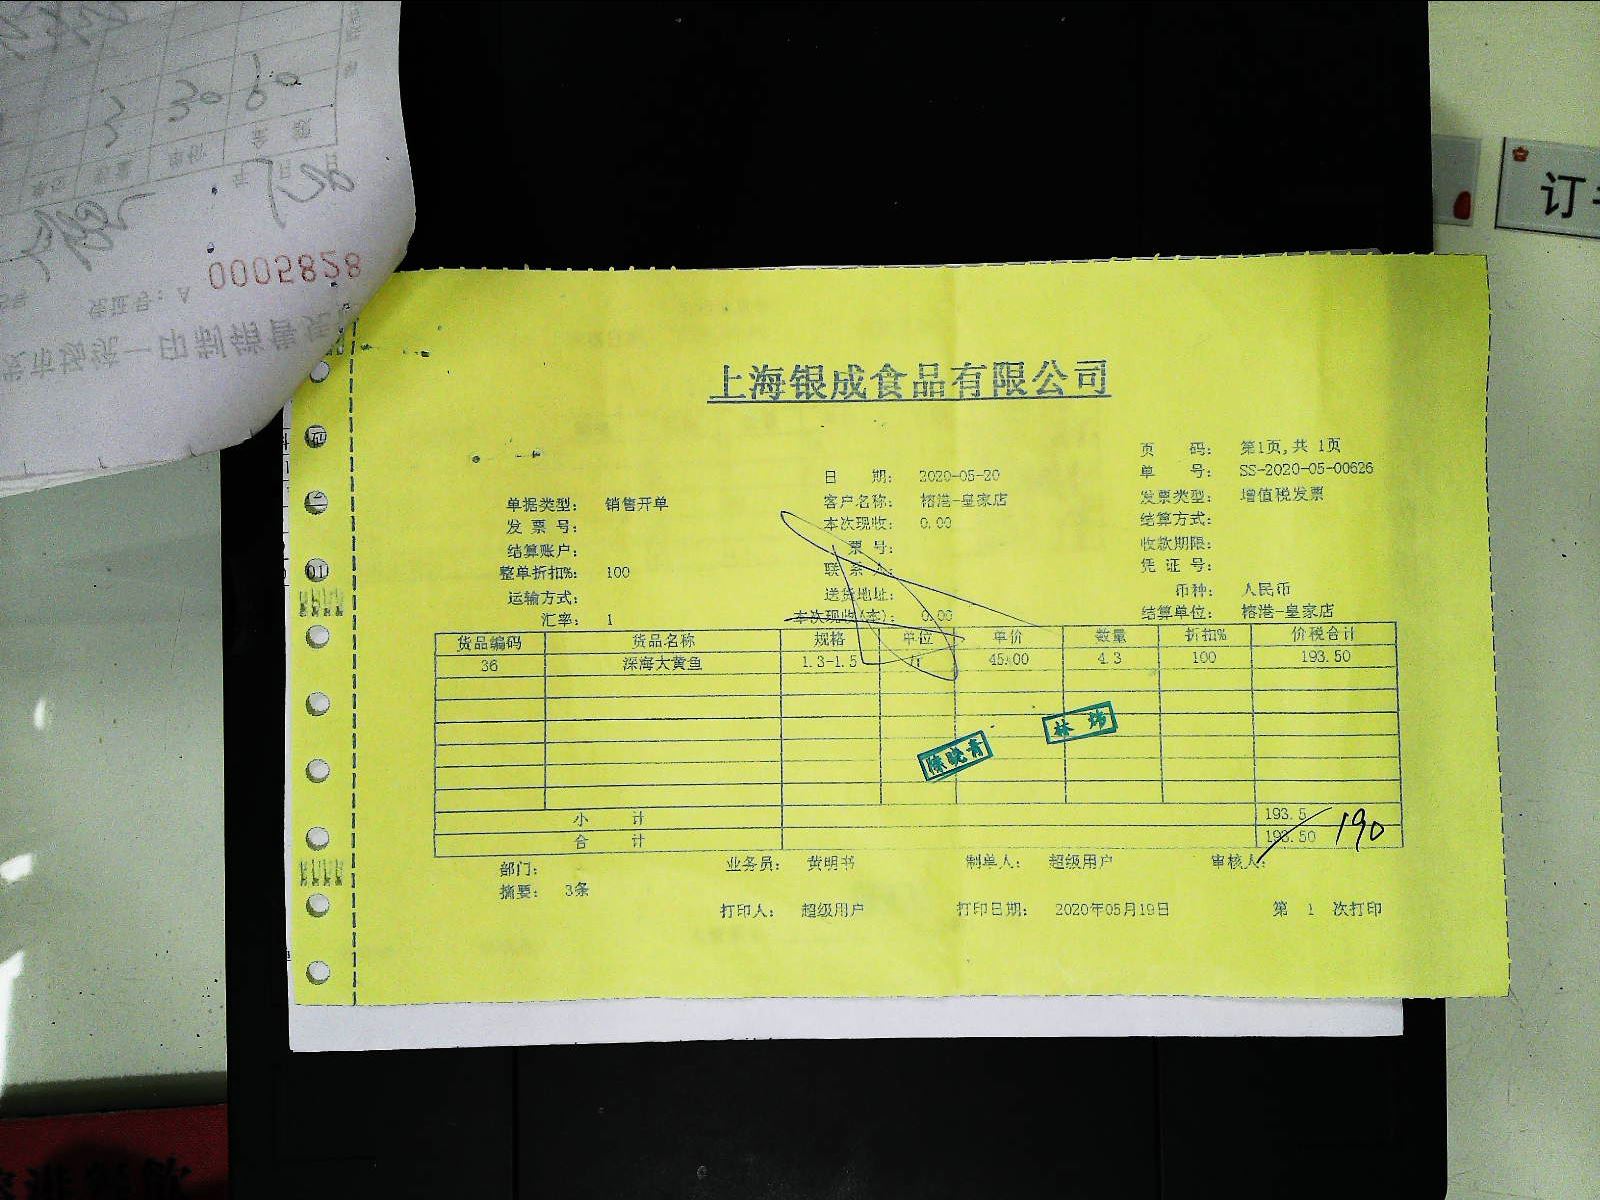 0005828
凭证号：A
市场统一印制销售凭
订
上海银成食品有限公司
页 码： 第1页,共 1页
日 期： 2020-05-20 单 号： SS-2020-05-00626
单据类型： 销售开单 客户名称： 榕港-皇家店 发票类型： 增值税发票
发 票 号： 本次现收： 0.00 结算方式：
结算账户： 票 号： 收款期限：
整单折扣%： 100 联 系 人： 凭 证 号：
运输方式： 送货地址： 币种： 人民币
汇率： 1 本次现收(本)： 0.00 结算单位： 榕港-皇家店
货品编码 货品名称 规格 单位 单价 数量 折扣% 价税合计
36 深海大黄鱼 1.3-1.5 45.00 4.3 100 193.50
林炜
陈晓青
小 计 193.5
合 计 193.50 190
部门： 业务员： 黄明书 制单人： 超级用户 审核人：
摘要： 3条
打印人： 超级用户 打印日期： 2020年05月19日 第 1 次打印